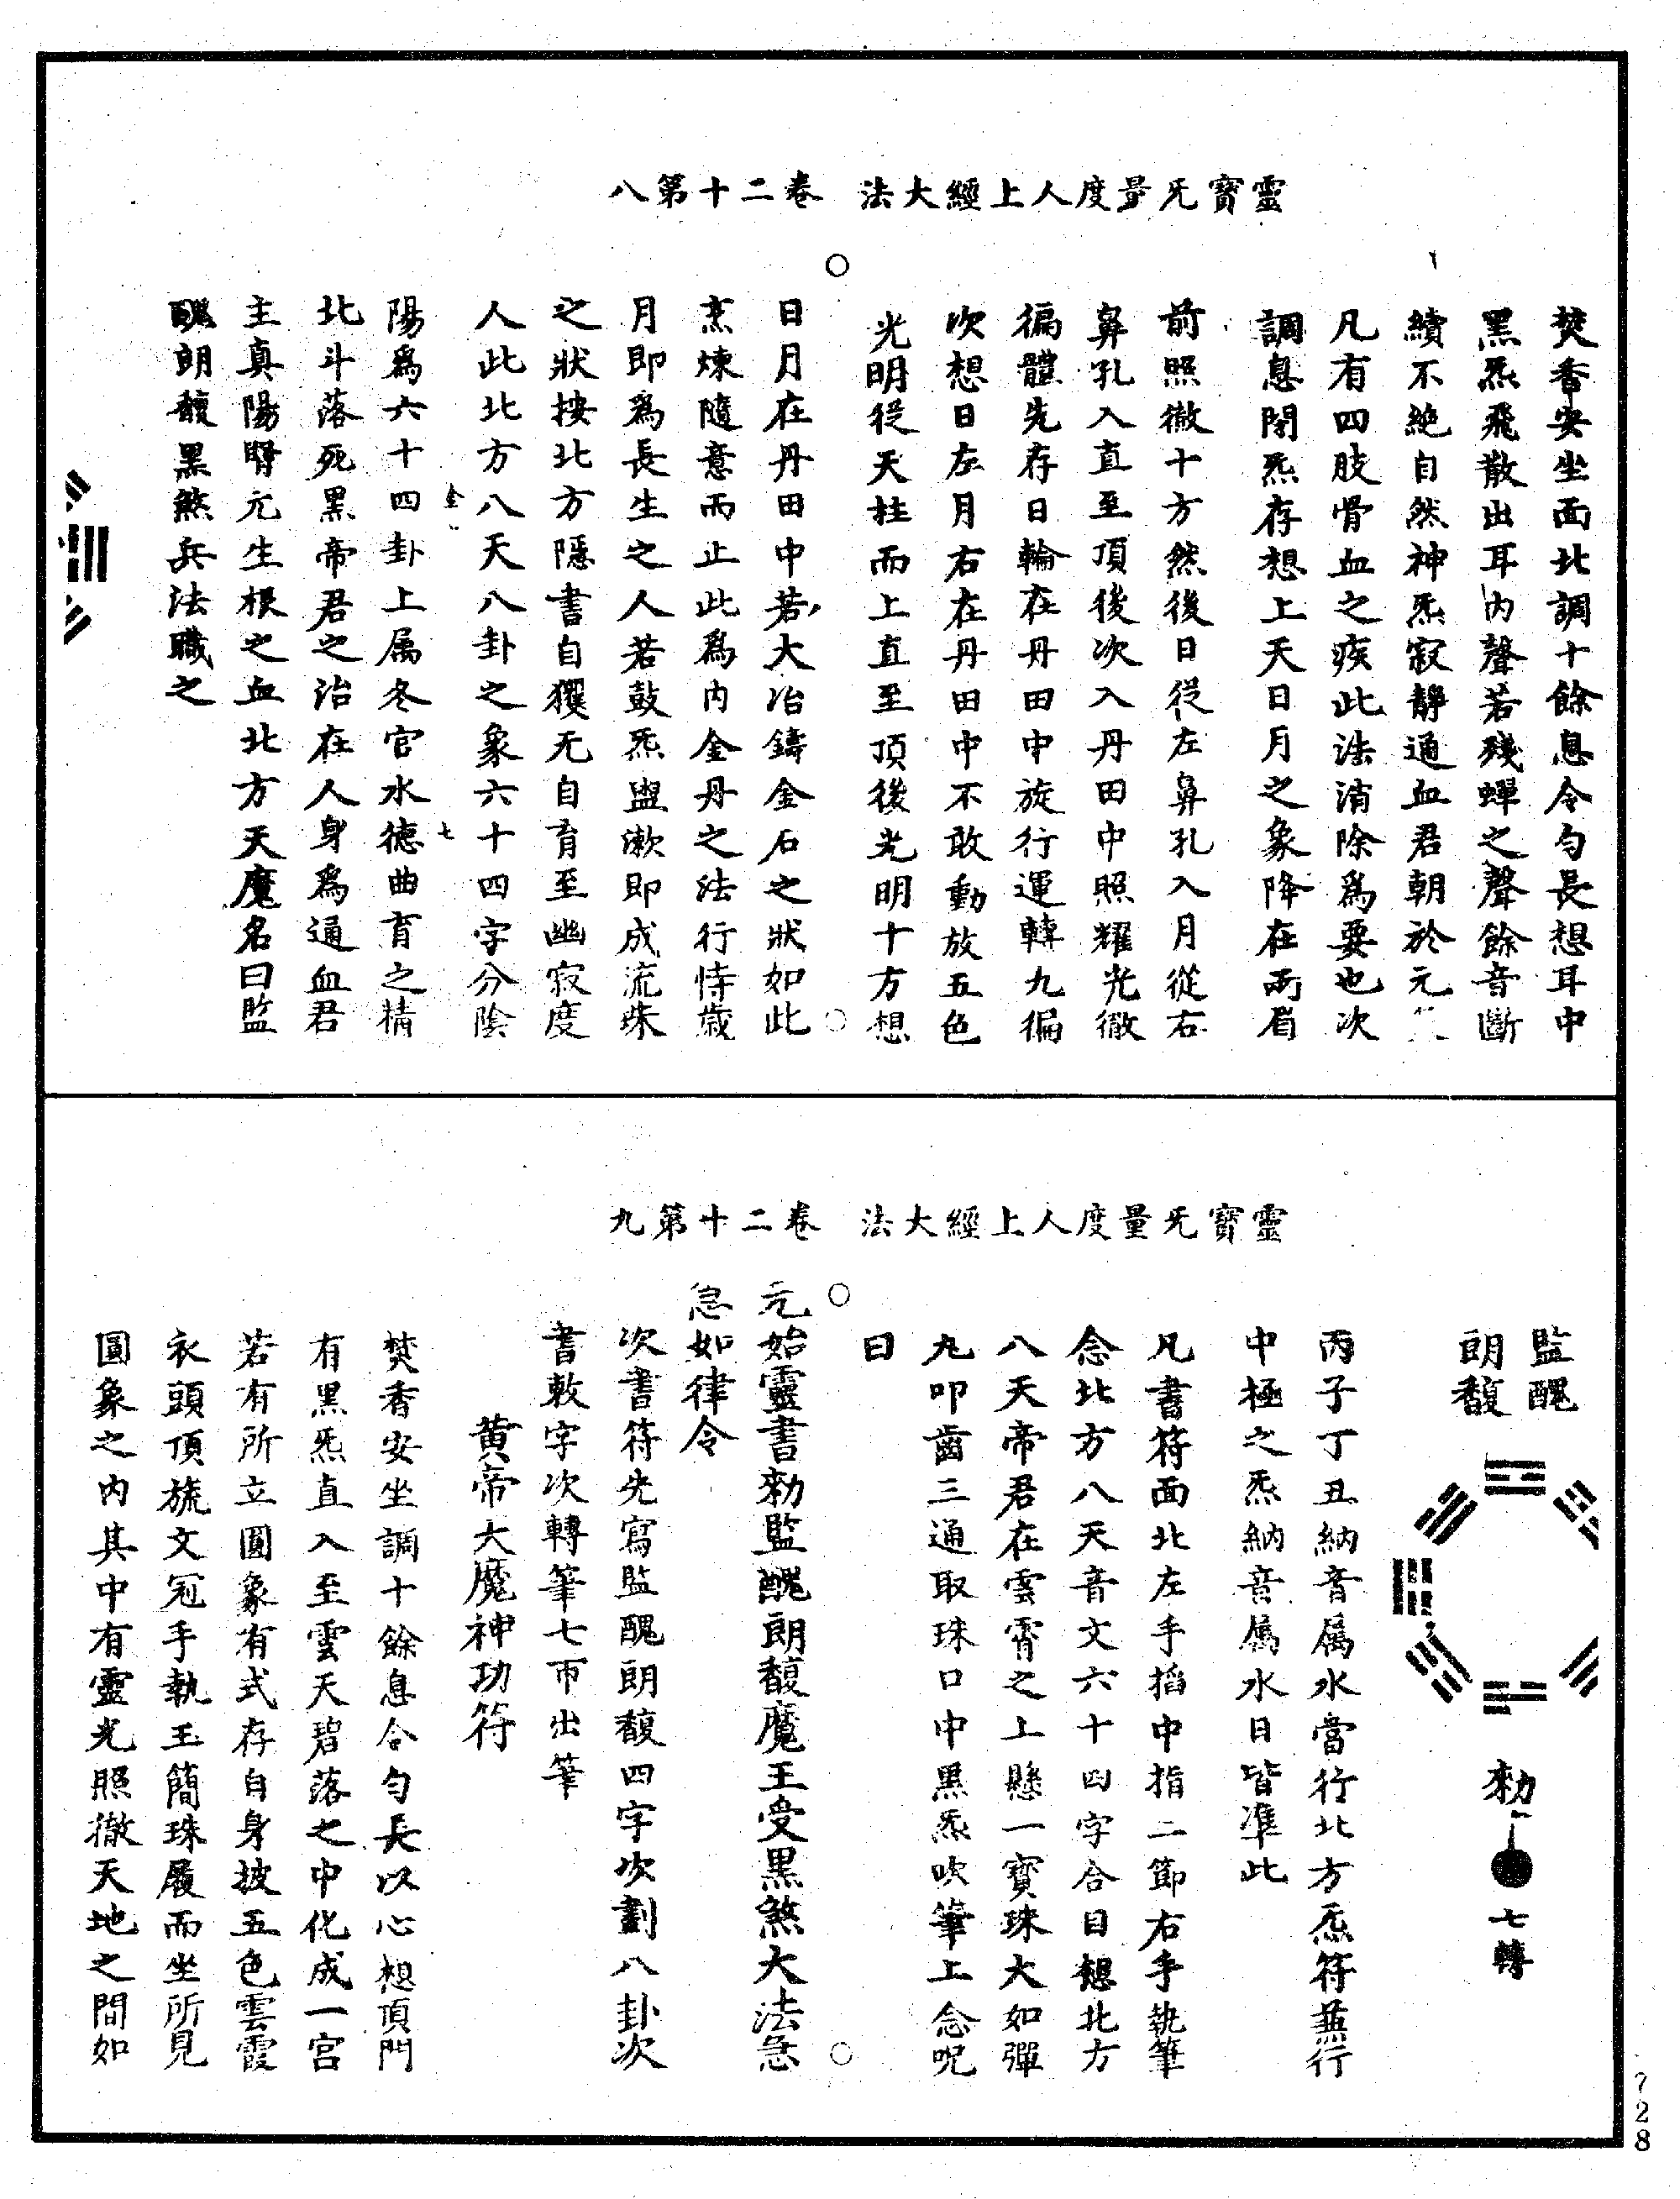 靈寶旡量度人上經大法　卷二十第八
焚香安坐面北調十餘息令勻長想耳中
黑炁飛散出耳内聲若殘蟬之聲餘音斷
續不絶自然神炁寂静通血君朝於元
凡有四肢骨血之疾此法消除爲要也次
調息閉炁存想上天日月之象降在兩眉
前照徹十方然後日從左鼻孔入月從右
鼻孔入直至頂後次入丹田中照耀光徹
徧體先存日輪在丹田中旋行運轉九徧
次想日左月右在丹田中不敢動放五色
光明從天柱而上直至頂後光明十方想
日月在丹田中若大冶鑄金石之狀如此
烹煉隨意而止此爲内金丹之法行持歲
月即爲長生之人若鼓炁盥漱即成流珠
之狀按北方隱書自玃无自育至幽寂度
人此北方八天八卦之象六十四字分陰
陽爲六十四卦上属冬官水德曲育之精
北斗落死黑帝君之治在人身爲通血君
主真陽腎元生根之血北方天魔名曰監
醜朗馥黑煞兵法職之
靈寶旡量度人上經大法　卷二十第九
監醜
朗馥
勑
七轉
丙子丁丑納音属水當行北方炁符兼行
中極之炁納音属水日皆準此
凡書符面北左手搯中指二節右手執筆
念北方八天音文六十四字合目想北方
八天帝君在雲霄之上懸一寶珠大如彈
丸叩齒三通取珠口中黑炁吹筆上念呪
曰
元始靈書勑監醜朗馥魔王受黑煞大法急
急如律令
次書符先寫監醜朗馥四字次劃八卦次
書敕字次轉筆七帀出筆
黄帝大魔神功符
焚香安坐調十餘息合勻長以心想頂門
有黑炁直入至雲天碧落之中化成一宮
若有所立圓象有式存自身披五色雲霞
衣頭頂旒文冠手執玉簡珠履而坐所見
圓象之内其中有靈光照徹天地之間如
728